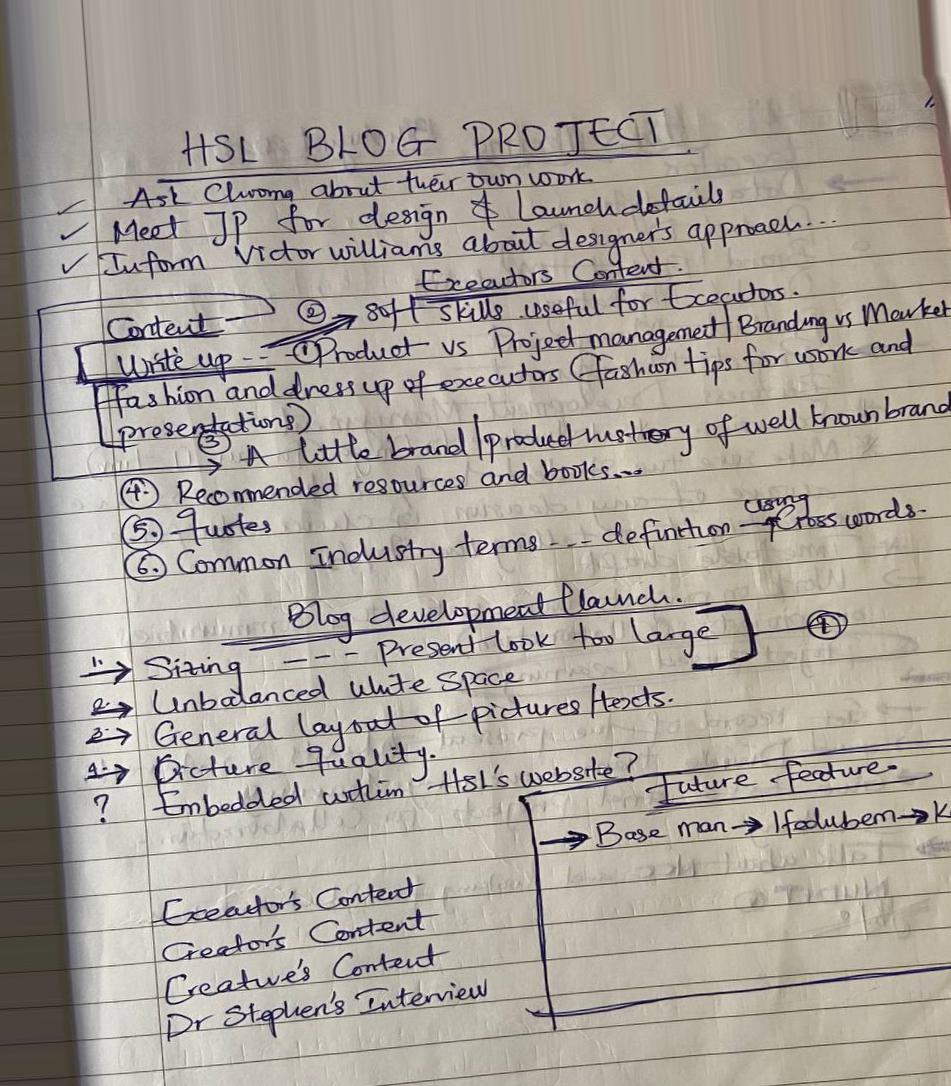 HSL BLOG PROJECT
✓ Ask Chioma about their own work
✓ Meet JP for design & Launch details
✓ Inform Victor williams about designer's approach...
Executors Content.
Content
② → soft skills useful for Executors.
Write up -- ① Product vs Project management | Branding vs Market
fashion and dress up of executors (fashion tips for work and
presentations)
③ → A little brand/product history of well known brand
④ Recommended resources and books...
⑤ Quotes
⑥ Common Industry terms --- definition → using Cross words.
Blog development / launch.
1. → Sizing --- Present look too large ④
2. → Unbalanced White Space
3. → General layout of pictures/texts.
4. → Picture Quality.
? Embedded within HSL's website?
Future feature
→ Base man → Ifedubem → K
Executor's Content
Creator's Content
Creative's Content
Dr Stephen's Interview